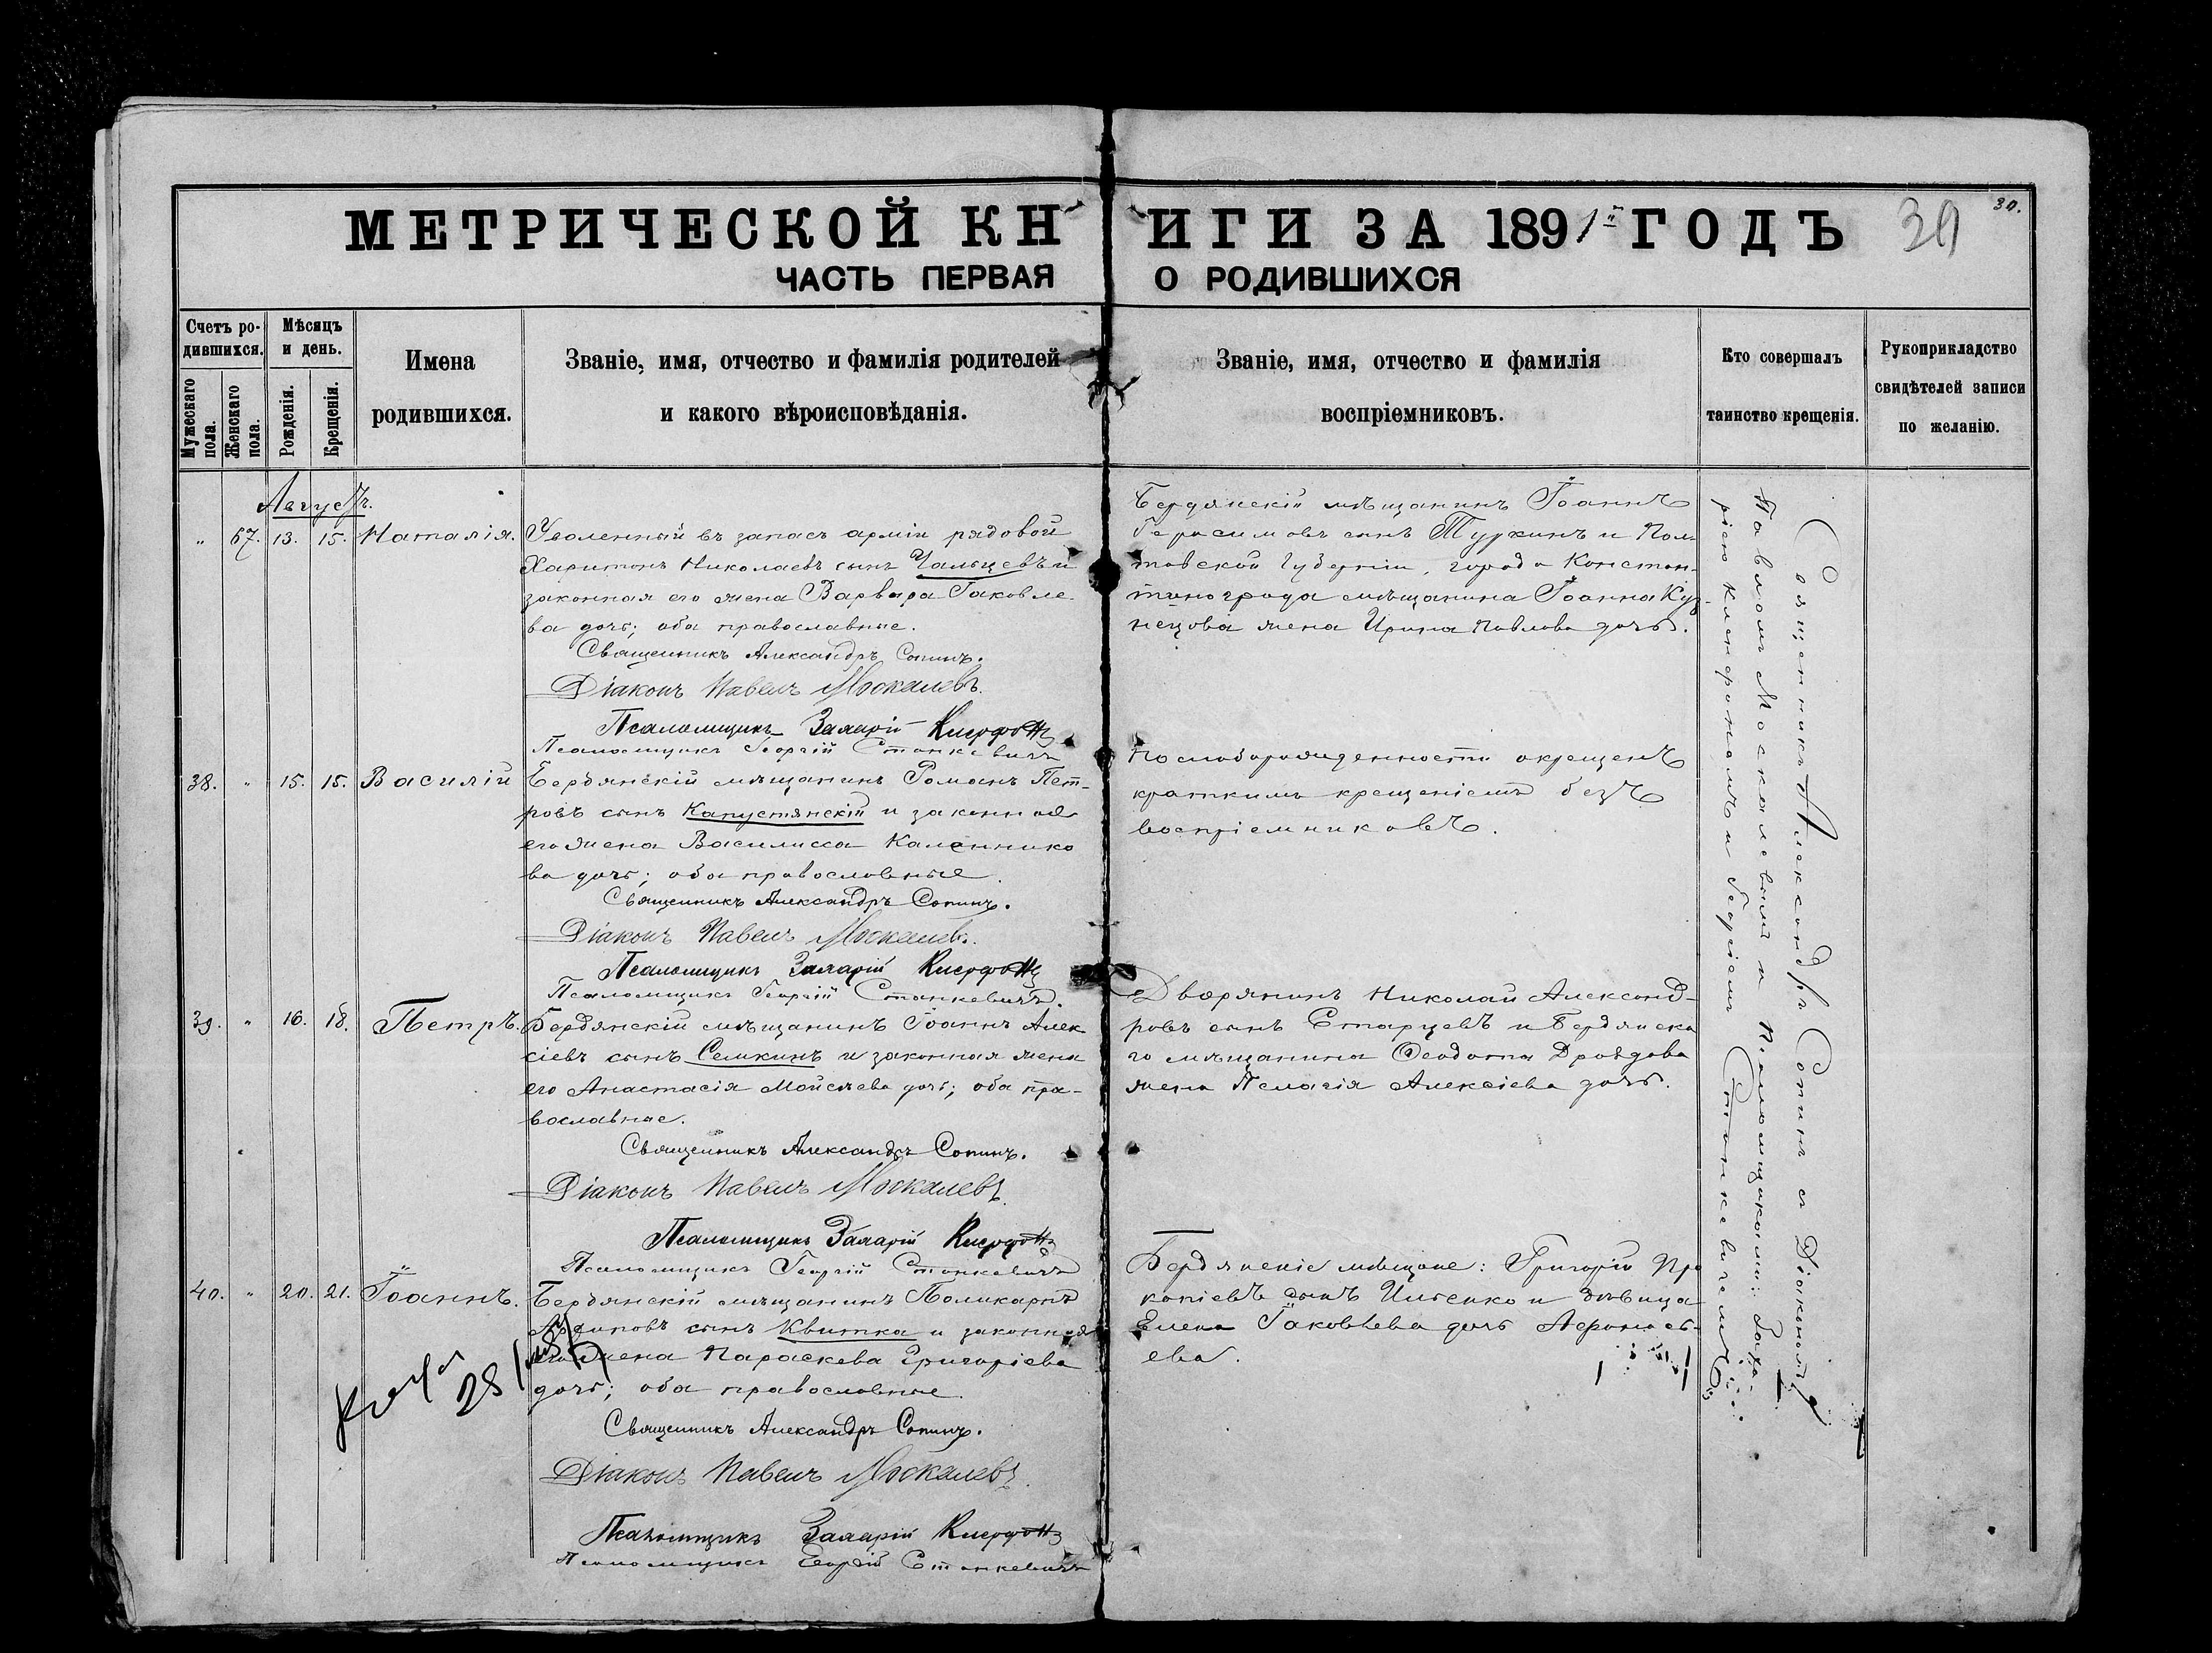 МЕТРИЧЕСКОЙ КНИГИ ЗА 1891й ГОДЪ
30.
ЧАСТЬ ПЕРВАЯ О РОДИВШИХСЯ
Счетъ родившихся.
Мужескаго пола.
Женскаго пола.
Мѣсяцъ и день.
Рожденія.
Крещенія.
Имена
родившихся.
Званіе, имя, отчество и фамилія родителей
и какого вѣроисповѣданія.
Званіе, имя, отчество и фамилія
воспріемниковъ.
Кто совершалъ
таинство крещенія.
Рукоприкладство
свидѣтелей записи
по желанію.
Августъ.
" 67. 13. 15. Наталія.
Уволенный въ запасъ арміи рядовой
Харитонъ Николаевъ сынъ Чальцевъ и
законная его жена Варвара Іаковле-
ва дочь; оба православные.
Священникъ Александръ Сопинъ.
Діаконъ Павелъ Москалевъ.
Псаломщикъ Захарій
Псаломщикъ Георгій Станкевичъ
Бердянскій мѣщанинъ Іоаннъ
Герасимовъ сынъ Туркинъ и Пол-
тавской губерніи, города Констан-
тинограда мѣщанина Іоанна Куз-
нецова жена Ирина Павлова дочь.
38. " 15. 15. Василій
Бердянскій мѣщанинъ Романъ Пет-
ровъ сынъ Капустянскій и законная
его жена Василисса Каленнико
ва дочь; оба православные.
Священникъ Александръ Сопинъ.
Діаконъ Павелъ Москалевъ.
Псаломщикъ Захарій
Псаломщикъ Георгій Станкевичъ.
По слаборожденности окрещенъ
краткимъ крещеніемъ безъ
воспріемниковъ.
39. " 16. 18. Петръ.
Бердянскій мѣщанинъ Іоаннъ Алек
сіевъ сынъ Семкинъ и законная жена
его Анастасія Мойсѣева дочь; оба пра-
вославные.
Священникъ Александръ Сопинъ.
Діаконъ Павелъ Москалевъ.
Псаломщикъ Захарій
Псаломщикъ Георгій Станкевичъ
Дворянинъ Николай Александ-
ровъ сынъ Старцевъ и Бердянска
го мѣщанина Ѳеодота Дроздова
жена Пелагія Алексіева дочь.
40. " 20. 21. Іоаннъ.
Бердянскій мѣщанинъ Поликарпъ
сынъ Квитка и законная
его жена Параскева Григоріева
дочь; оба православные.
Священникъ Александръ Сопинъ.
Діаконъ Павелъ Москалевъ.
Псаломщикъ Захарій
Псаломщикъ Георгій Станкевичъ
Бердянскіе мѣщане: Григорій Про
копіевъ сынъ Ильенко и дѣвица
Елена Іаковлева дочь Афанась-
ева.
Священникъ Александръ Сопинъ съ Діакономъ
Павломъ Москалевымъ и Псаломщиками: Заха-
ріею и Георгіемъ Станкевичемъ